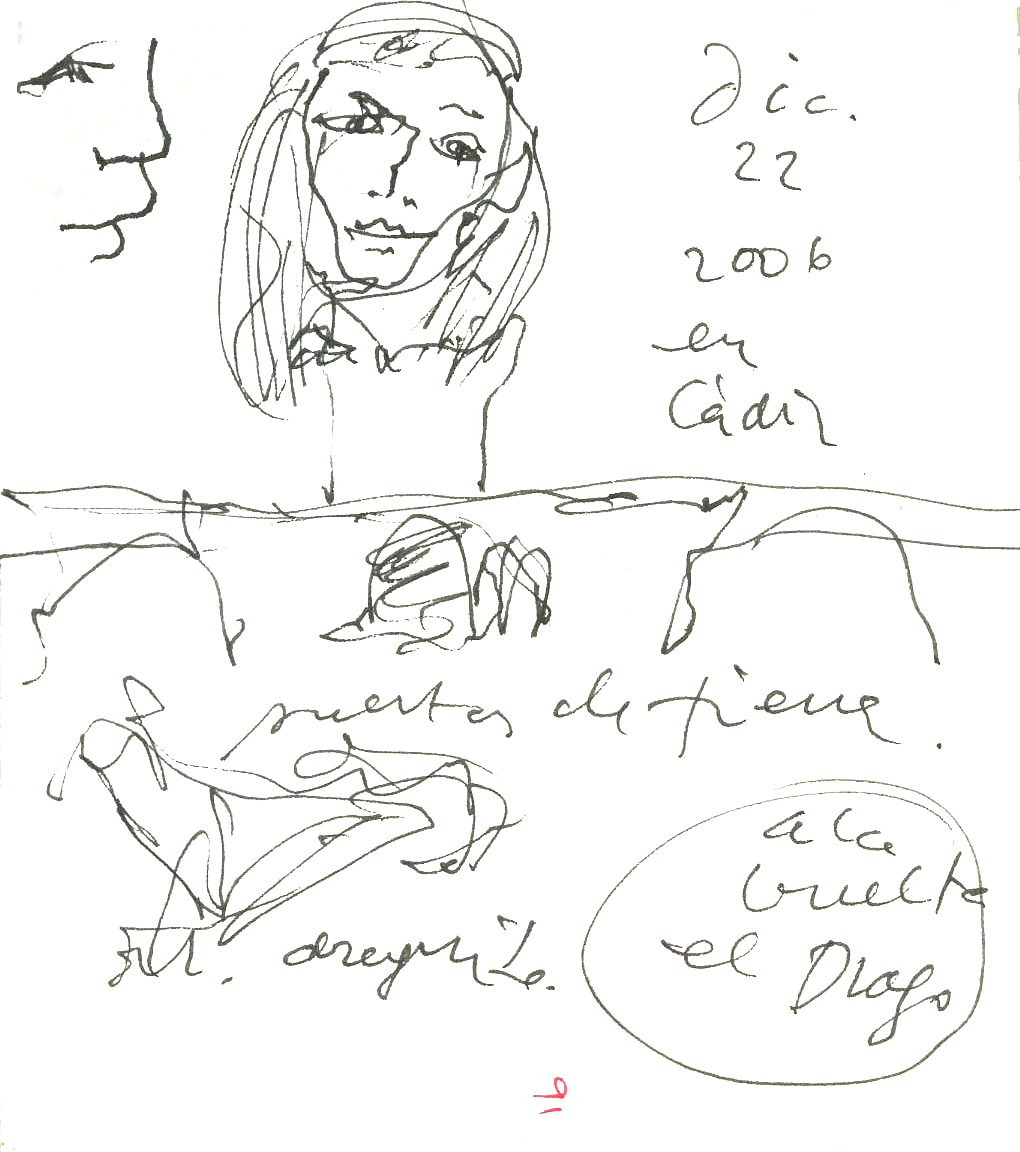 Dic.
22
2006
en
Cádiz
puertas de tierra.
a la
vuelta
el Drago